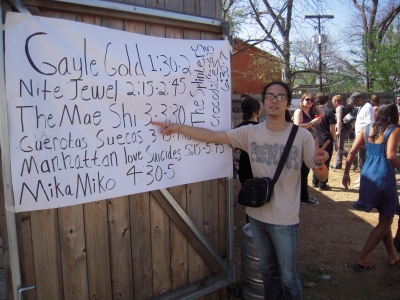 Gayle Gold 1:30-2
Nite Jewel 2:15-2:45
The Mae Shi 3-3:30
Guerotas Suecas 3
Manhattan love Suicides 5:15-5:45
Mika Miko 4:30-5
The Splinters
Crocodiles